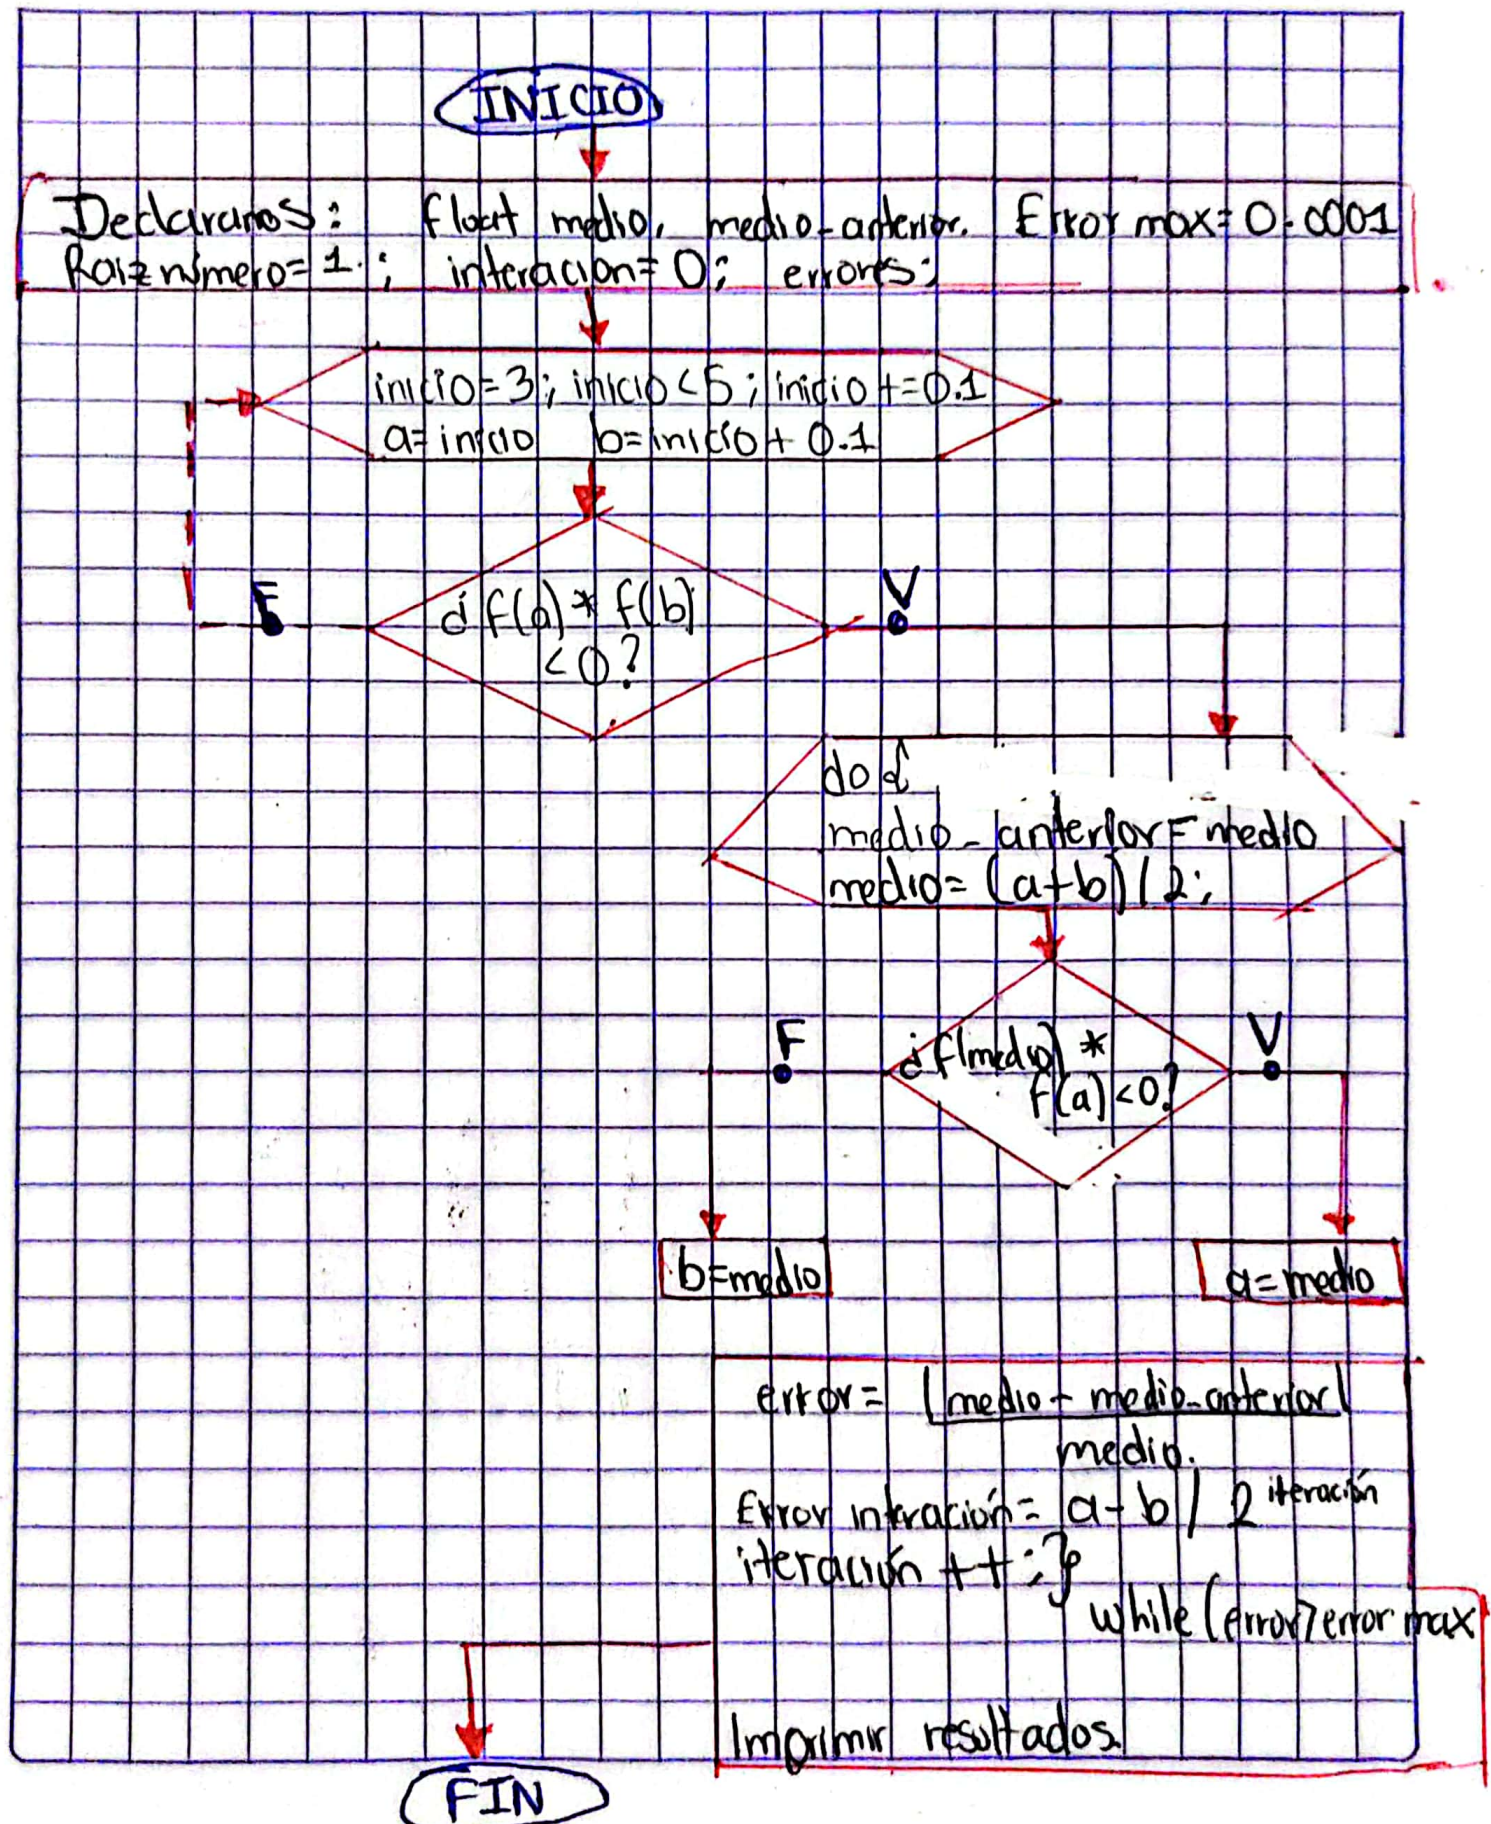 INICIO
Declaramos: float medio, medio-anterior. Error max=0.0001
Raiz número=1.; interacion=0; errores;
inicio=3; inicio<5; inicio+=0.1
a=inicio b=inicio+0.1
F
V
¿f(a)*f(b)
<0?
do{
medio-anterior=medio
medio=(a+b)/2;
F
V
¿f(medio)*
f(a)<0?
b=medio
a=medio
error= |medio-medio-anterior|
medio.
Error interación= a-b/2 iteración
iteración ++;}
while(error>error max
Imprimir resultados.
FIN